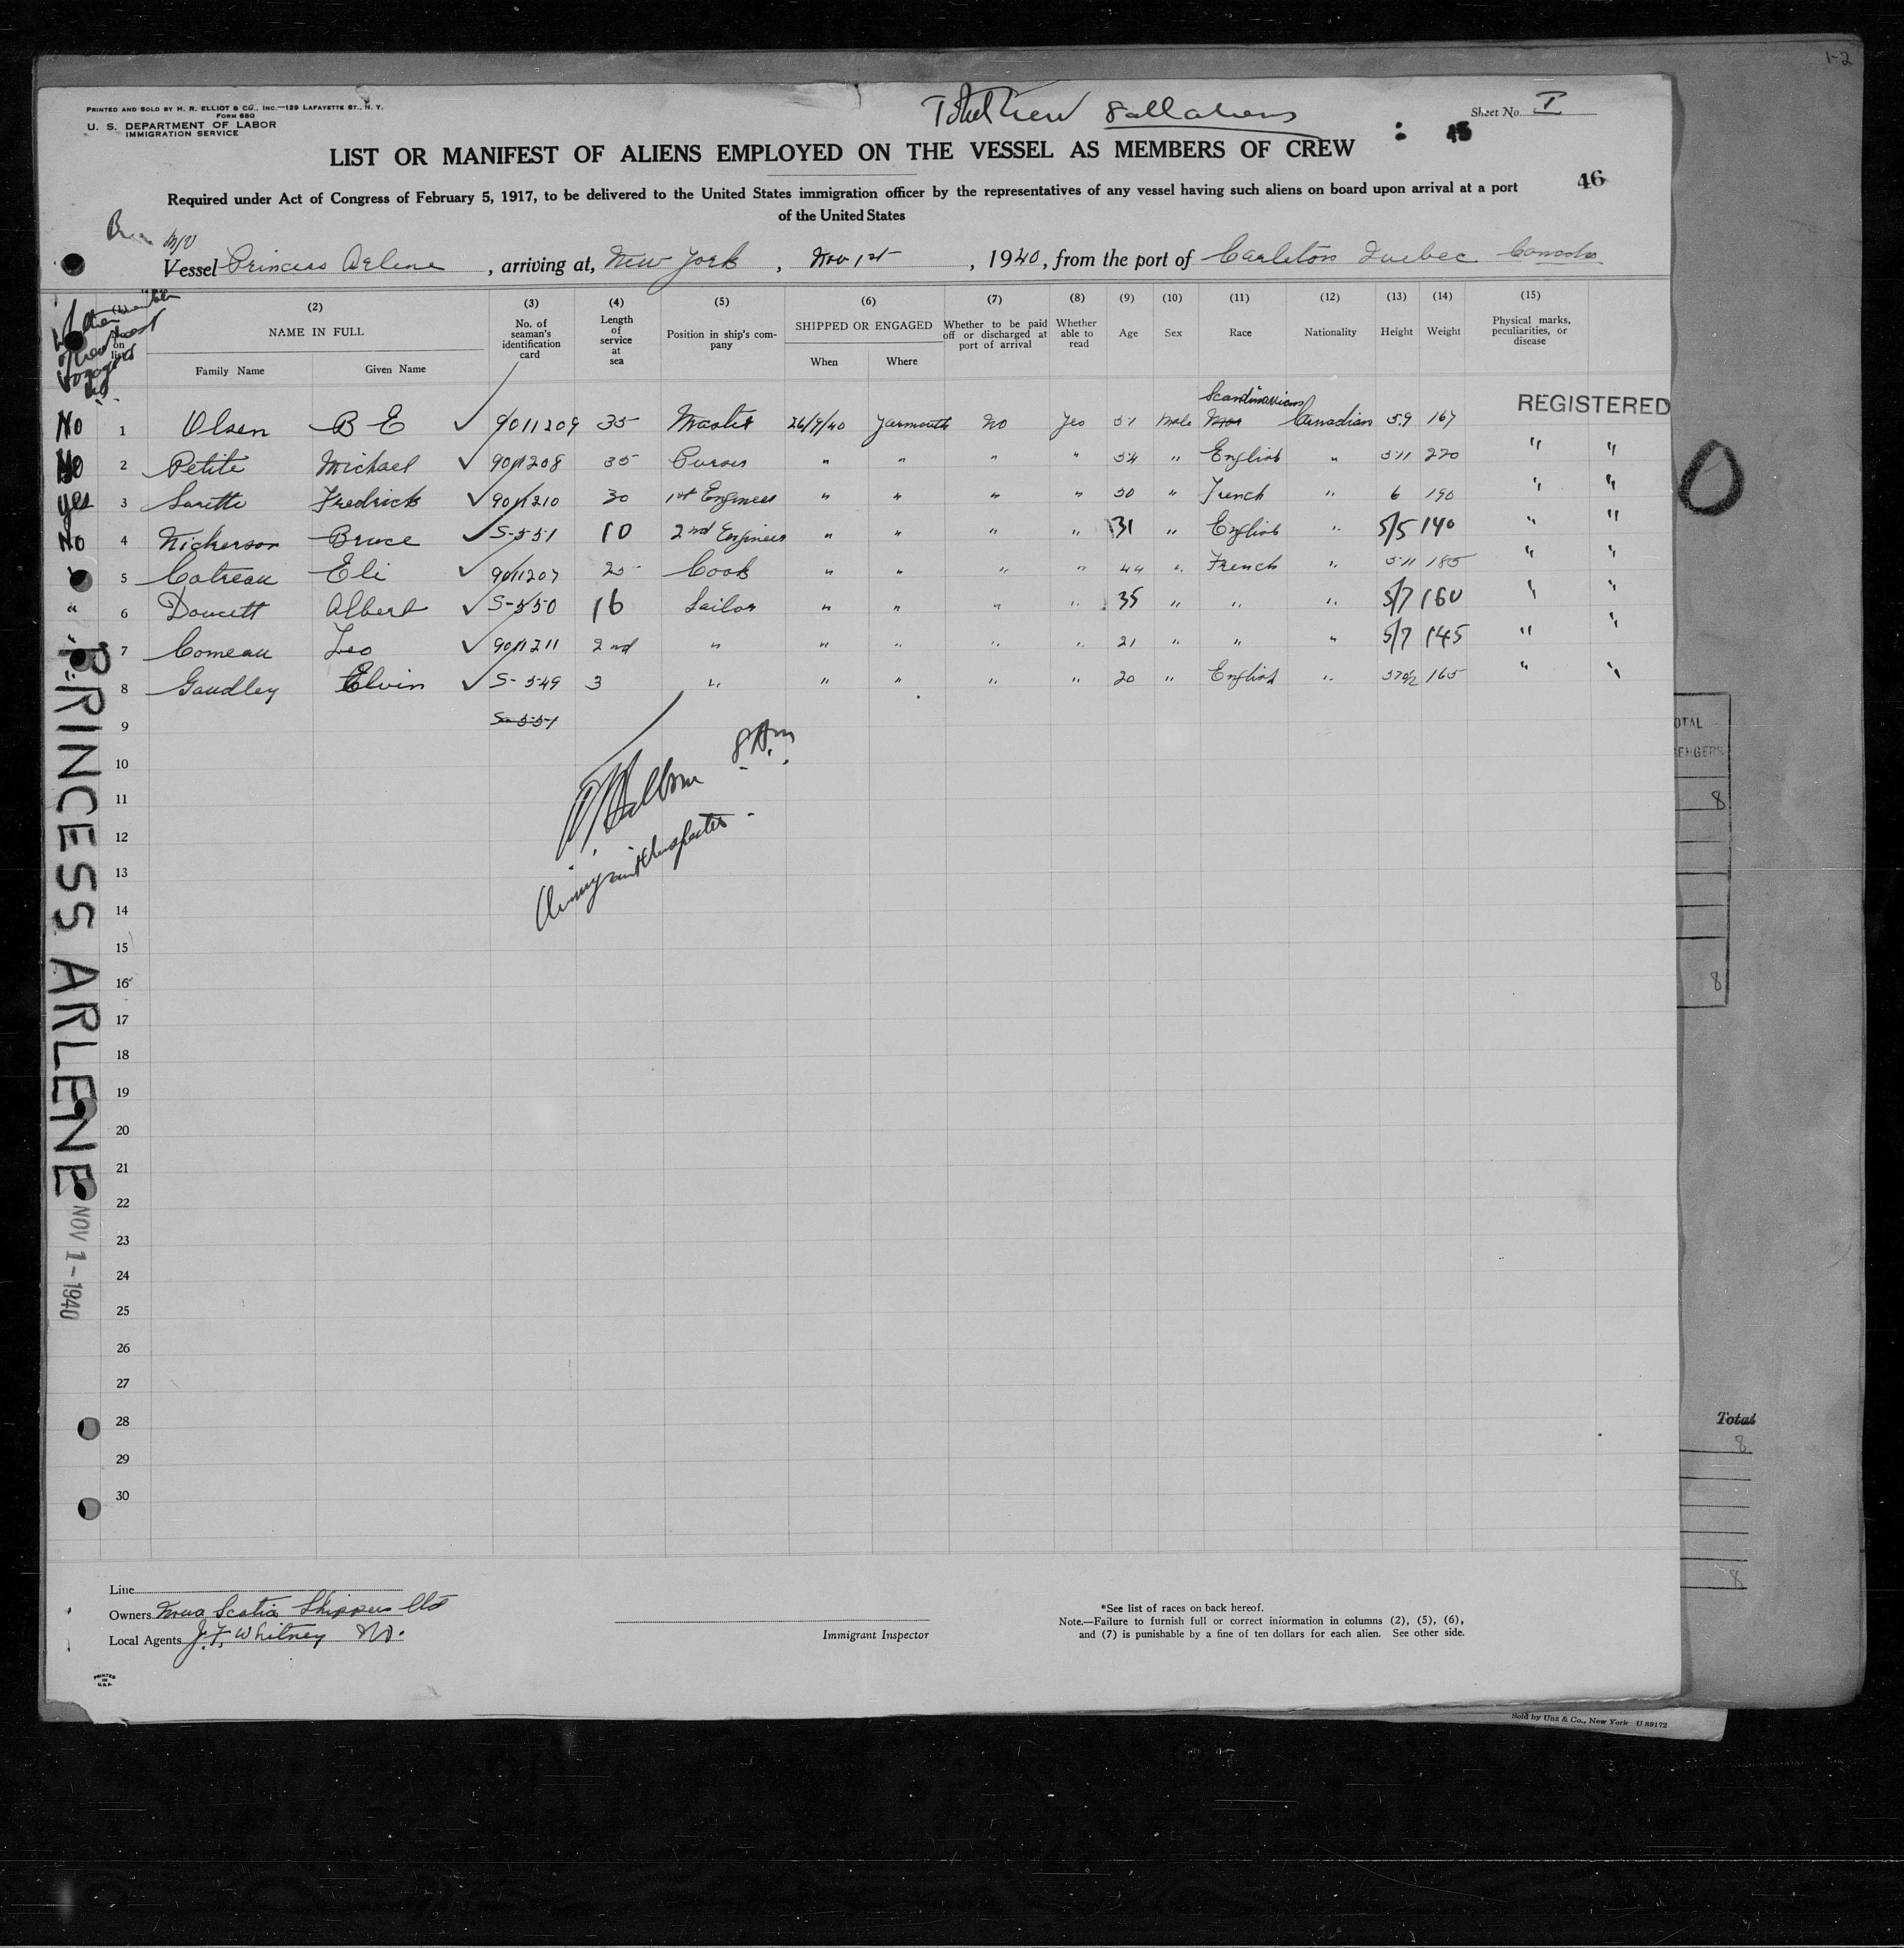 1-2
PRINTED AND SOLD BY H. R. ELLIOT & CO., INC.—129 LAFAYETTE ST., N. Y.
FORM 680
U. S. DEPARTMENT OF LABOR
IMMIGRATION SERVICE
Sheet No. I
LIST OR MANIFEST OF ALIENS EMPLOYED ON THE VESSEL AS MEMBERS OF CREW
46
Required under Act of Congress of February 5, 1917, to be delivered to the United States immigration officer by the representatives of any vessel having such aliens on board upon arrival at a port
of the United States
M/V
Vessel Princess Arlene, arriving at, New York, Nov 1st, 1940, from the port of Carleton Quebec Canada
(2) (3) (4) (5) (6) (7) (8) (9) (10) (11) (12) (13) (14) (15)
on list
NAME IN FULL
Family Name Given Name
No. of seaman's identification card
Length of service at sea
Position in ship's company
SHIPPED OR ENGAGED
When Where
Whether to be paid off or discharged at port of arrival
Whether able to read
Age Sex Race Nationality Height Weight
Physical marks, peculiarities, or disease
REGISTERED
Scandinavian
No 1 Olsen B E ✓ 9011209 35 Master 26/9/40 Yarmouth No Yes 51 Male Canadian 5.9 167
No 2 Petite Michael ✓ 9011208 35 Purser " " " " 54 " English " 5-11 220 " "
Yes 3 Surette Fredrick ✓ 9011210 30 1st Engineer " " " " 50 " French " 6 190 " "
No 4 Nickerson Bruce ✓ S-551 10 2nd Engineer " " " " 31 " English " 5/5 140 " "
5 Cotreau Eli ✓ 9011207 25 Cook " " " " 44 " French " 5-11 185 " "
" 6 Doucett Albert ✓ S-550 16 Sailor " " " " 35 " " " 5/7 160 " "
7 Comeau Leo ✓ 9011211 2nd " " " " " 21 " " " 5/7 145 " "
8 Gaudley Elvin ✓ S-549 3 " " " " " 20 " English " 165 " "
9 S-551
10
11
12
13
14
15
16
17
18
19
20
21
22
23
24
25
26
27
28
29
30
8 Am
Immigrant Inspector
PRINCESS ARLENE
NOV 1-1940
Line
Owners Nova Scotia Shippers Ltd
Local Agents J. F. Whitney
Immigrant Inspector
*See list of races on back hereof.
Note.—Failure to furnish full or correct information in columns (2), (5), (6),
and (7) is punishable by a fine of ten dollars for each alien. See other side.
PRINTED
IN
U.S.A.
OTAL
ENGERS
8
8
Total
8
8
Sold by Unz & Co., New York U 89172